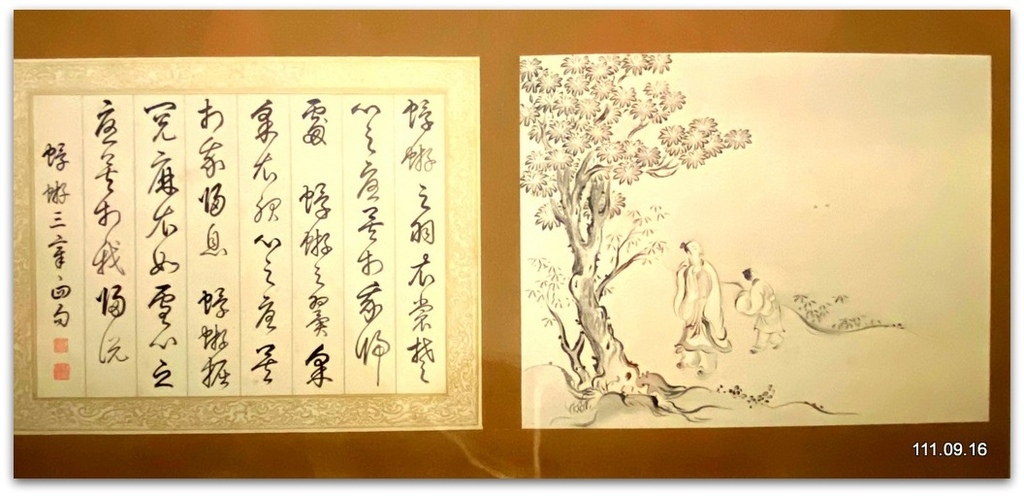 蜉蝣之羽衣裳楚楚
心之憂矣於我歸
處 蜉蝣之翼采
采衣服心之憂矣
於我歸息 蜉蝣掘
閱麻衣如雪心之
憂矣於我歸說
蜉蝣三章四句
111.09.16